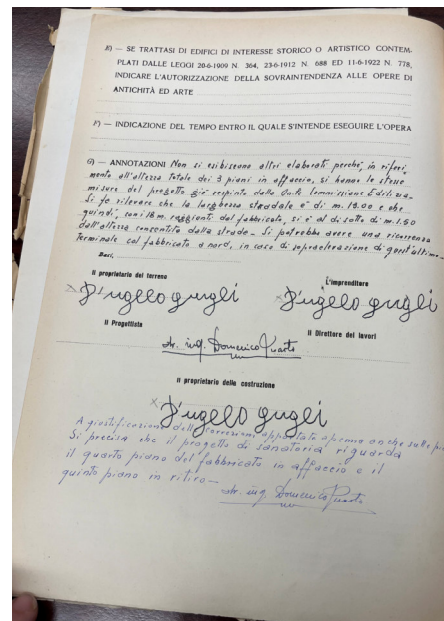 E) — SE TRATTASI DI EDIFICI DI INTERESSE STORICO O ARTISTICO CONTEM-
PLATI DALLE LEGGI 20-6-1909 N. 364, 23-6-1912 N. 688 ED 11-6-1922 N. 778,
INDICARE L'AUTORIZZAZIONE DELLA SOVRAINTENDENZA ALLE OPERE DI
ANTICHITÀ ED ARTE
F) — INDICAZIONE DEL TEMPO ENTRO IL QUALE S'INTENDE ESEGUIRE L'OPERA
G) — ANNOTAZIONI Non si esibiscono altri elaborati perché, in riferi-
mento all'altezza totale dei 3 piani in affaccio, si hanno le stesse
misure del progetto già respinto dalla Onle Commissione Edilizia.
Si fa rilevare che la larghezza stradale è di m. 13.00 e che
quindi, con i 18 m. raggiunti dal fabbricato, si è al di sotto di m. 1.50
dall'altezza consentita dalla strada - Si potrebbe avere una ricorrenza
terminale col fabbricato a nord, in caso di sopraelevazione di quest'ultimo-
Bari,
Il proprietario del terreno
L'imprenditore
D'ugelo gugli
D'ugelo gugli
Il Progettista
Il Direttore dei lavori
dr. ing. Domenico Quarto
Il proprietario della costruzione
D'ugelo gugli
A giustificazione delle correzioni apportate a penna anche sulle
Si precisa che il progetto di sanatoria riguarda
il quarto piano del fabbricato in affaccio e il
quinto piano in ritiro-
dr. ing. Domenico Quarto